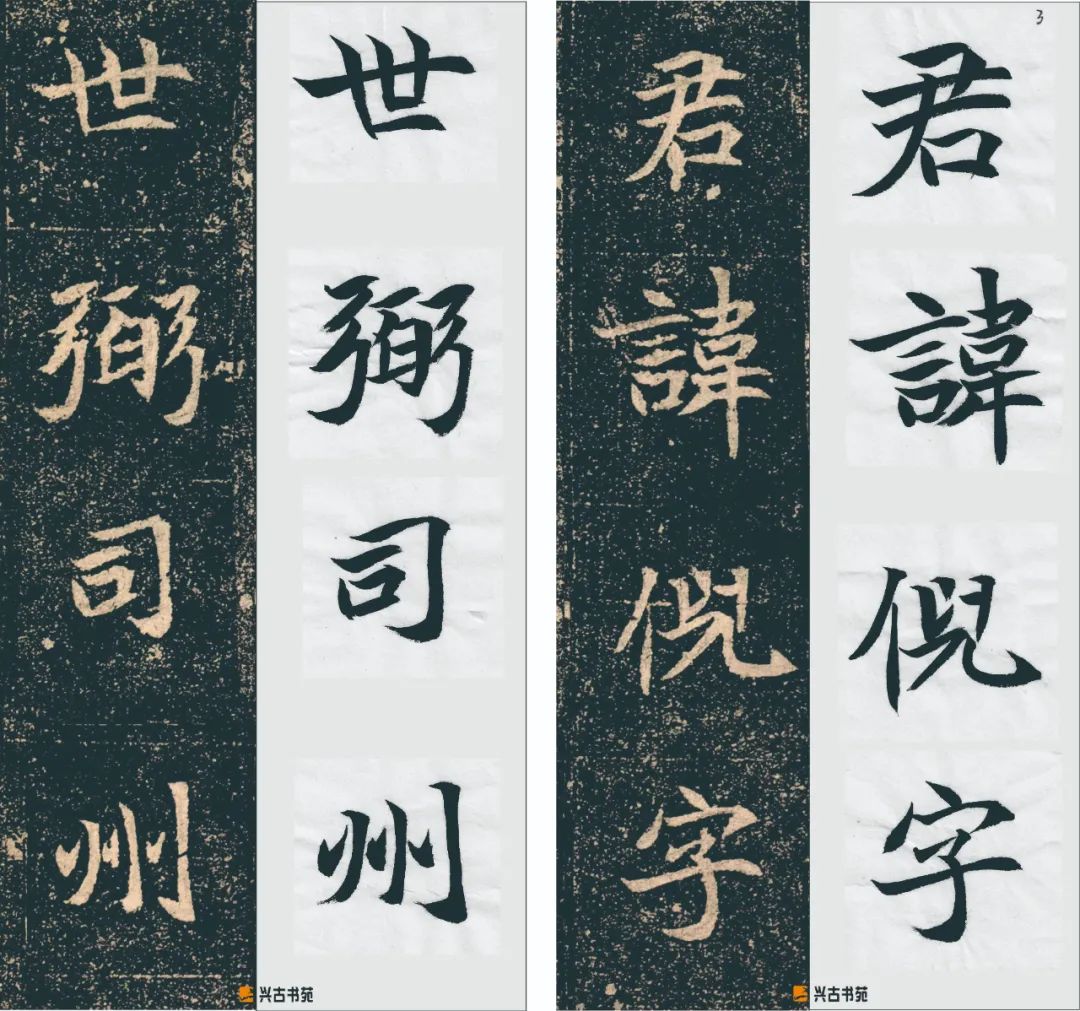 3
君諱倪字
君諱倪字
兴古书苑
世弼司州
世弼司州
兴古书苑